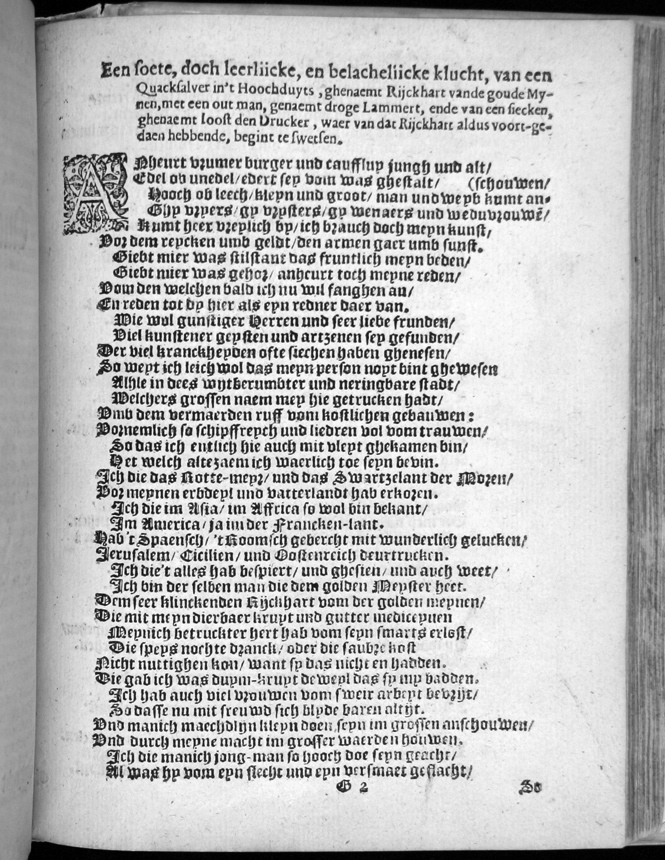 Een soete, doch leerliicke, en belacheliicke klucht, van een
Quacksalver in't Hoochduyts, ghenaemt Rijckhart vande goude My-
nen, met een out man, genaemt droge Lammert, ende van een siecken,
ghenaemt Ioost den Drucker, waer van dat Rijckhart aldus voort-ge-
daen hebbende, begint te swetsen.
ANheurt vrumer burger und caufflup jungh und alt/
Edel ob unedel/ edert sey vom was ghestalt/ (schouwen/
Hooch ob leech/ kleyn und groot/ man und weyb kumt an-
Ghy vryers/ gy vrysters/ gy wenaers und weduvrouwē/
Kumt heer vreylich by/ ich brauch doch meyn kunst/
Vor dem reycken umb geldt/ den armen gaer umb sunst.
Giebt mier was stilstant das fruntlich meyn beden/
Giebt mier was gehor/ anheurt toch meyne reden/
Vom den welchen bald ich nu wil fanghen an/
En reden tot by hier als eyn redner daer van.
Wie wol gunstiger Herren und seer liebe frunden/
Viel kunstener geysten und artzenen sey gefunden/
Der viel kranckheyden ofte siechen haben ghenesen/
So weyt ich leich wol das meyn person noyt bint ghewesen
Alhie in dees wytberumbter und neringbare stadt/
Welchers grossen naem mey hie getrucken hadt/
Vmb dem vermaerden ruff vom kostlichen gebauwen:
Vornemlich so schipffreych und liedren vol vom trauwen/
So das ich entlich hie auch mit vleyt ghekamen bin/
Het welch altezaem ich waerlich toe seyn bevin.
Ich die das Rotte-meyr/ und das Swartzelant der Moren/
Vor meynen erbdeyl und vatterlandt hab erkoren.
Ich die im Asia/ im Affrica so wol bin bekant/
Im America/ ja im der Francken-lant.
Hab 't Spaensch/ 't Roomsch gebercht mit wunderlich gelucken/
Jerusalem/ Cicilien/ und Oostenreich deurtrucken.
Ich die't alles hab bespiert/ und ghesien/ und auch weet/
Ich bin der selben man die dem golden Meyster heet.
Dem seer klinckenden Rijckhart vom der golden meynen/
Die mit meyn dierbaer kruyt und gutter mediceynen
Meynich betruckter hert hab vom seyn smarts erlost/
Die speys nochte dranck/ oder die saubre kost
Nicht nuttighen kon/ want sy das nicht en hadden.
Die gab ich was duym-kruyt deweyl das sy my badden.
Ich hab auch viel vrouwen vom sweir arbeyt bevrijt/
So dasse nu mit freuwd sich blyde baren altijt.
Vnd manich maechdlijn kleyn doen seyn im grossen anschouwen/
Vnd durch meyne macht im grosser waerden houwen.
Ich die manich jong-man so hooch doe seyn geacht/
Al was hy vom eyn slecht und eyn versmaet geslacht/
G 2 So